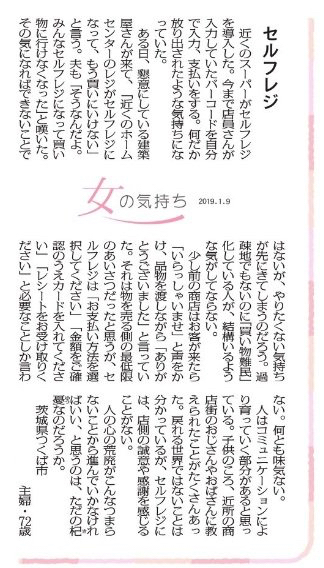 セルフレジ
近くのスーパーがセルフレジ
を導入した。今まで店員さんが
入力していたバーコードを自分
で入力、支払いをする。何だか
放り出されたような気持ちにな
っていた。
ある日、懇意にしている建築
屋さんが来て、「近くのホーム
センターのレジがセルフレジに
なって、もう買いにいけない」
と言う。夫も「そうなんだよ。
みんなセルフレジになって買い
物に行けなくなった」と嘆いた。
その気になればできないことで
女の気持ち
2019.1.9
はないが、やりたくない気持ち
が先にきてしまうのだろう。過
疎地でもないのに「買い物難民」
化している人が、結構いるよう
な気がしてならない。
少し前の商店はお客が来たら
「いらっしゃいませ」と声をか
け、品物を渡しながら「ありが
とうございました」と言ってい
た。それは物を売る側の最低限
のあいさつだったと思うが、セ
ルフレジは「お支払い方法を選
択してください」「金額をご確
認のうえカードを入れてくださ
い」「レシートをお受け取りく
ださい」と必要なことしか言わ
ない。何とも味気ない。
人はコミュニケーションによ
り育っていく部分があると思っ
ている。子供のころ、近所の商
店街のおじさんやおばさんに教
えられたことがたくさんあっ
た。戻れる世界ではないことは
分かっているが、セルフレジに
は、店側の誠意や感謝を感じる
ことがない。
人の心の荒廃がこんなつまら
ないことから進んでいかなけれ
ばいい、と思うのは、ただの杞
憂なのだろうか。
茨城県つくば市
主婦・72歳